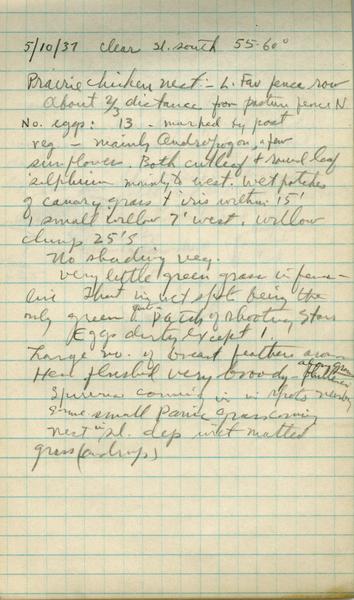 5/10/37 clear sl. south 55-60°
Prairie chicken nest - L. Fav fence row
about 2/3 distance from pasture fence N
No. eggs: 13 - marked by post
veg - mainly Andropogon, a few
sunflowers. Both cutleaf & round leaf
silphium mainly to west. Wet patches
of canary grass & iris within 15'
1 small willow 7' west, willow
clump 25' S
No shading veg.
Very little green grass in fence
line that in wet spots being the
only green. Patch of shooting stars
Eggs dirty except 1.
Large no. of breast feathers around
Hen flushed very broody, fluttered
along ground
Spirea coming in in spots nearby
some small panic grass coming
nest in sl. dep wet matted
grass (androp)